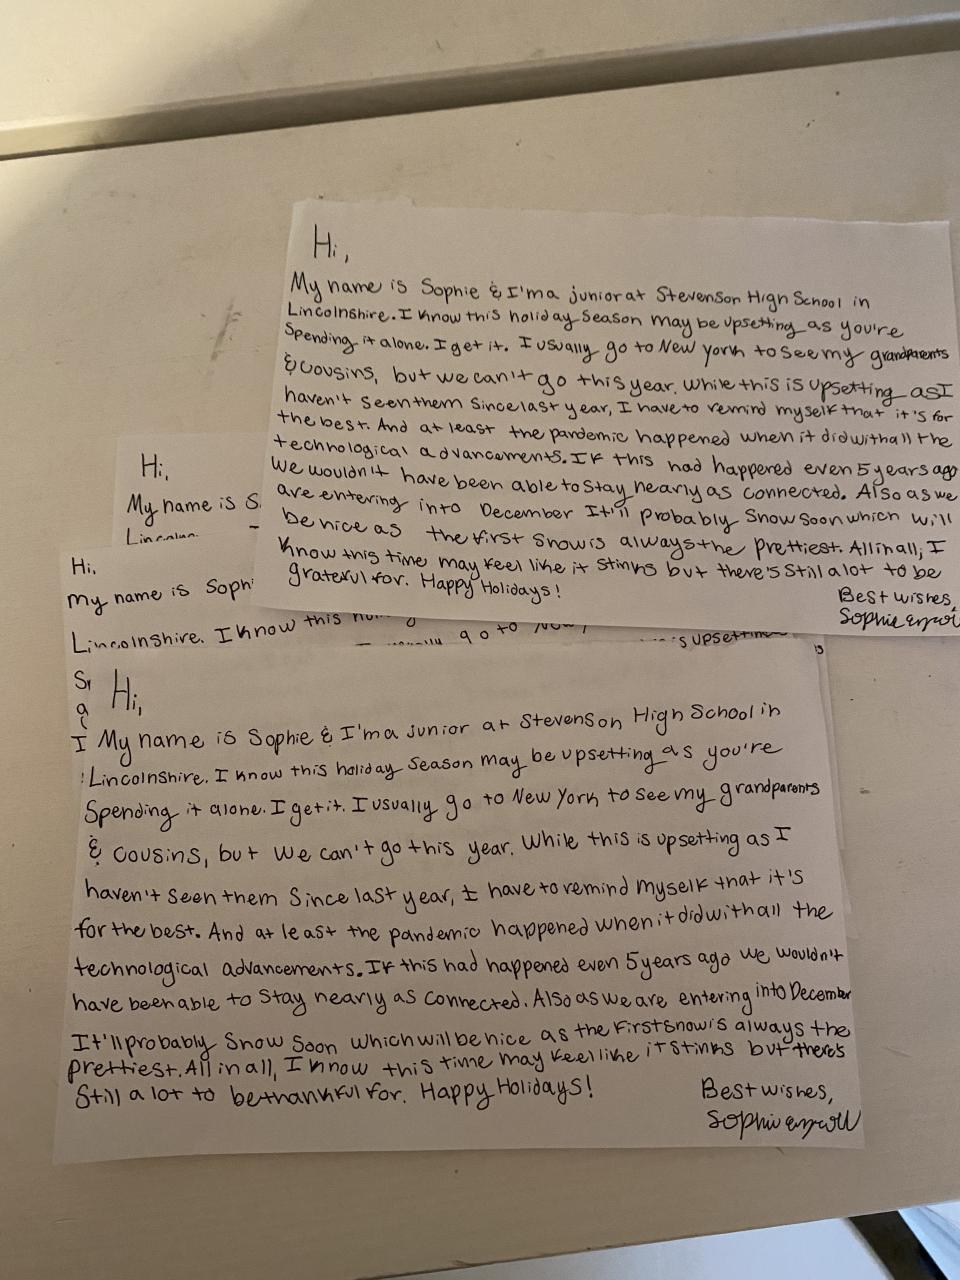 Hi,
My name is Sophie & I'm a junior at Stevenson High School in
Lincolnshire. I know this holiday season may be upsetting as you're
Spending it alone. I get it. I usually go to New york to see my grandparents
& cousins, but we can't go this year. While this is upsetting as I
haven't seen them since last year, I have to remind myself that it's for
the best. And at least the pandemic happened when it did with all the
technological advancements. If this had happened even 5 years ago
we wouldn't have been able to stay nearly as connected. Also as we
are entering into December It'll probably snow soon which will
be nice as the first snow is always the prettiest. All in all, I
know this time may feel like it stinks but there's still a lot to be
grateful for. Happy Holidays!
Best wishes,
Sophie
Hi,
My name is S
Hi,
my name is Soph
Lincolnshire. I know this
go to
upsetting
Hi,
My name is Sophie & I'm a junior at Stevenson High School in
Lincolnshire. I know this holiday season may be upsetting as you're
Spending it alone. I get it. I usually go to New York to see my grandparents
& cousins, but we can't go this year. While this is upsetting as I
haven't seen them since last year, I have to remind myself that it's
for the best. And at least the pandemic happened when it did with all the
technological advancements. If this had happened even 5 years ago we wouldn't
have been able to stay nearly as connected. Also as we are entering into December
It'll probably snow soon which will be nice as the first snow is always the
prettiest. All in all, I know this time may feel like it stinks but there's
still a lot to be thankful for. Happy Holidays!
Best wishes,
Sophie